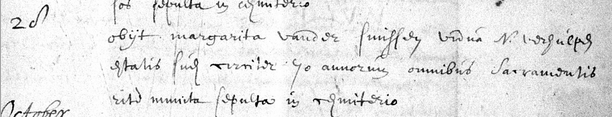 sos sepulta in cemiterio
28
obijt margarita vander smissen vidua N. verhulpen
etatis sue circiter 70 annorum omnibus sacramentis
rite munita sepulta in cemiterio
October